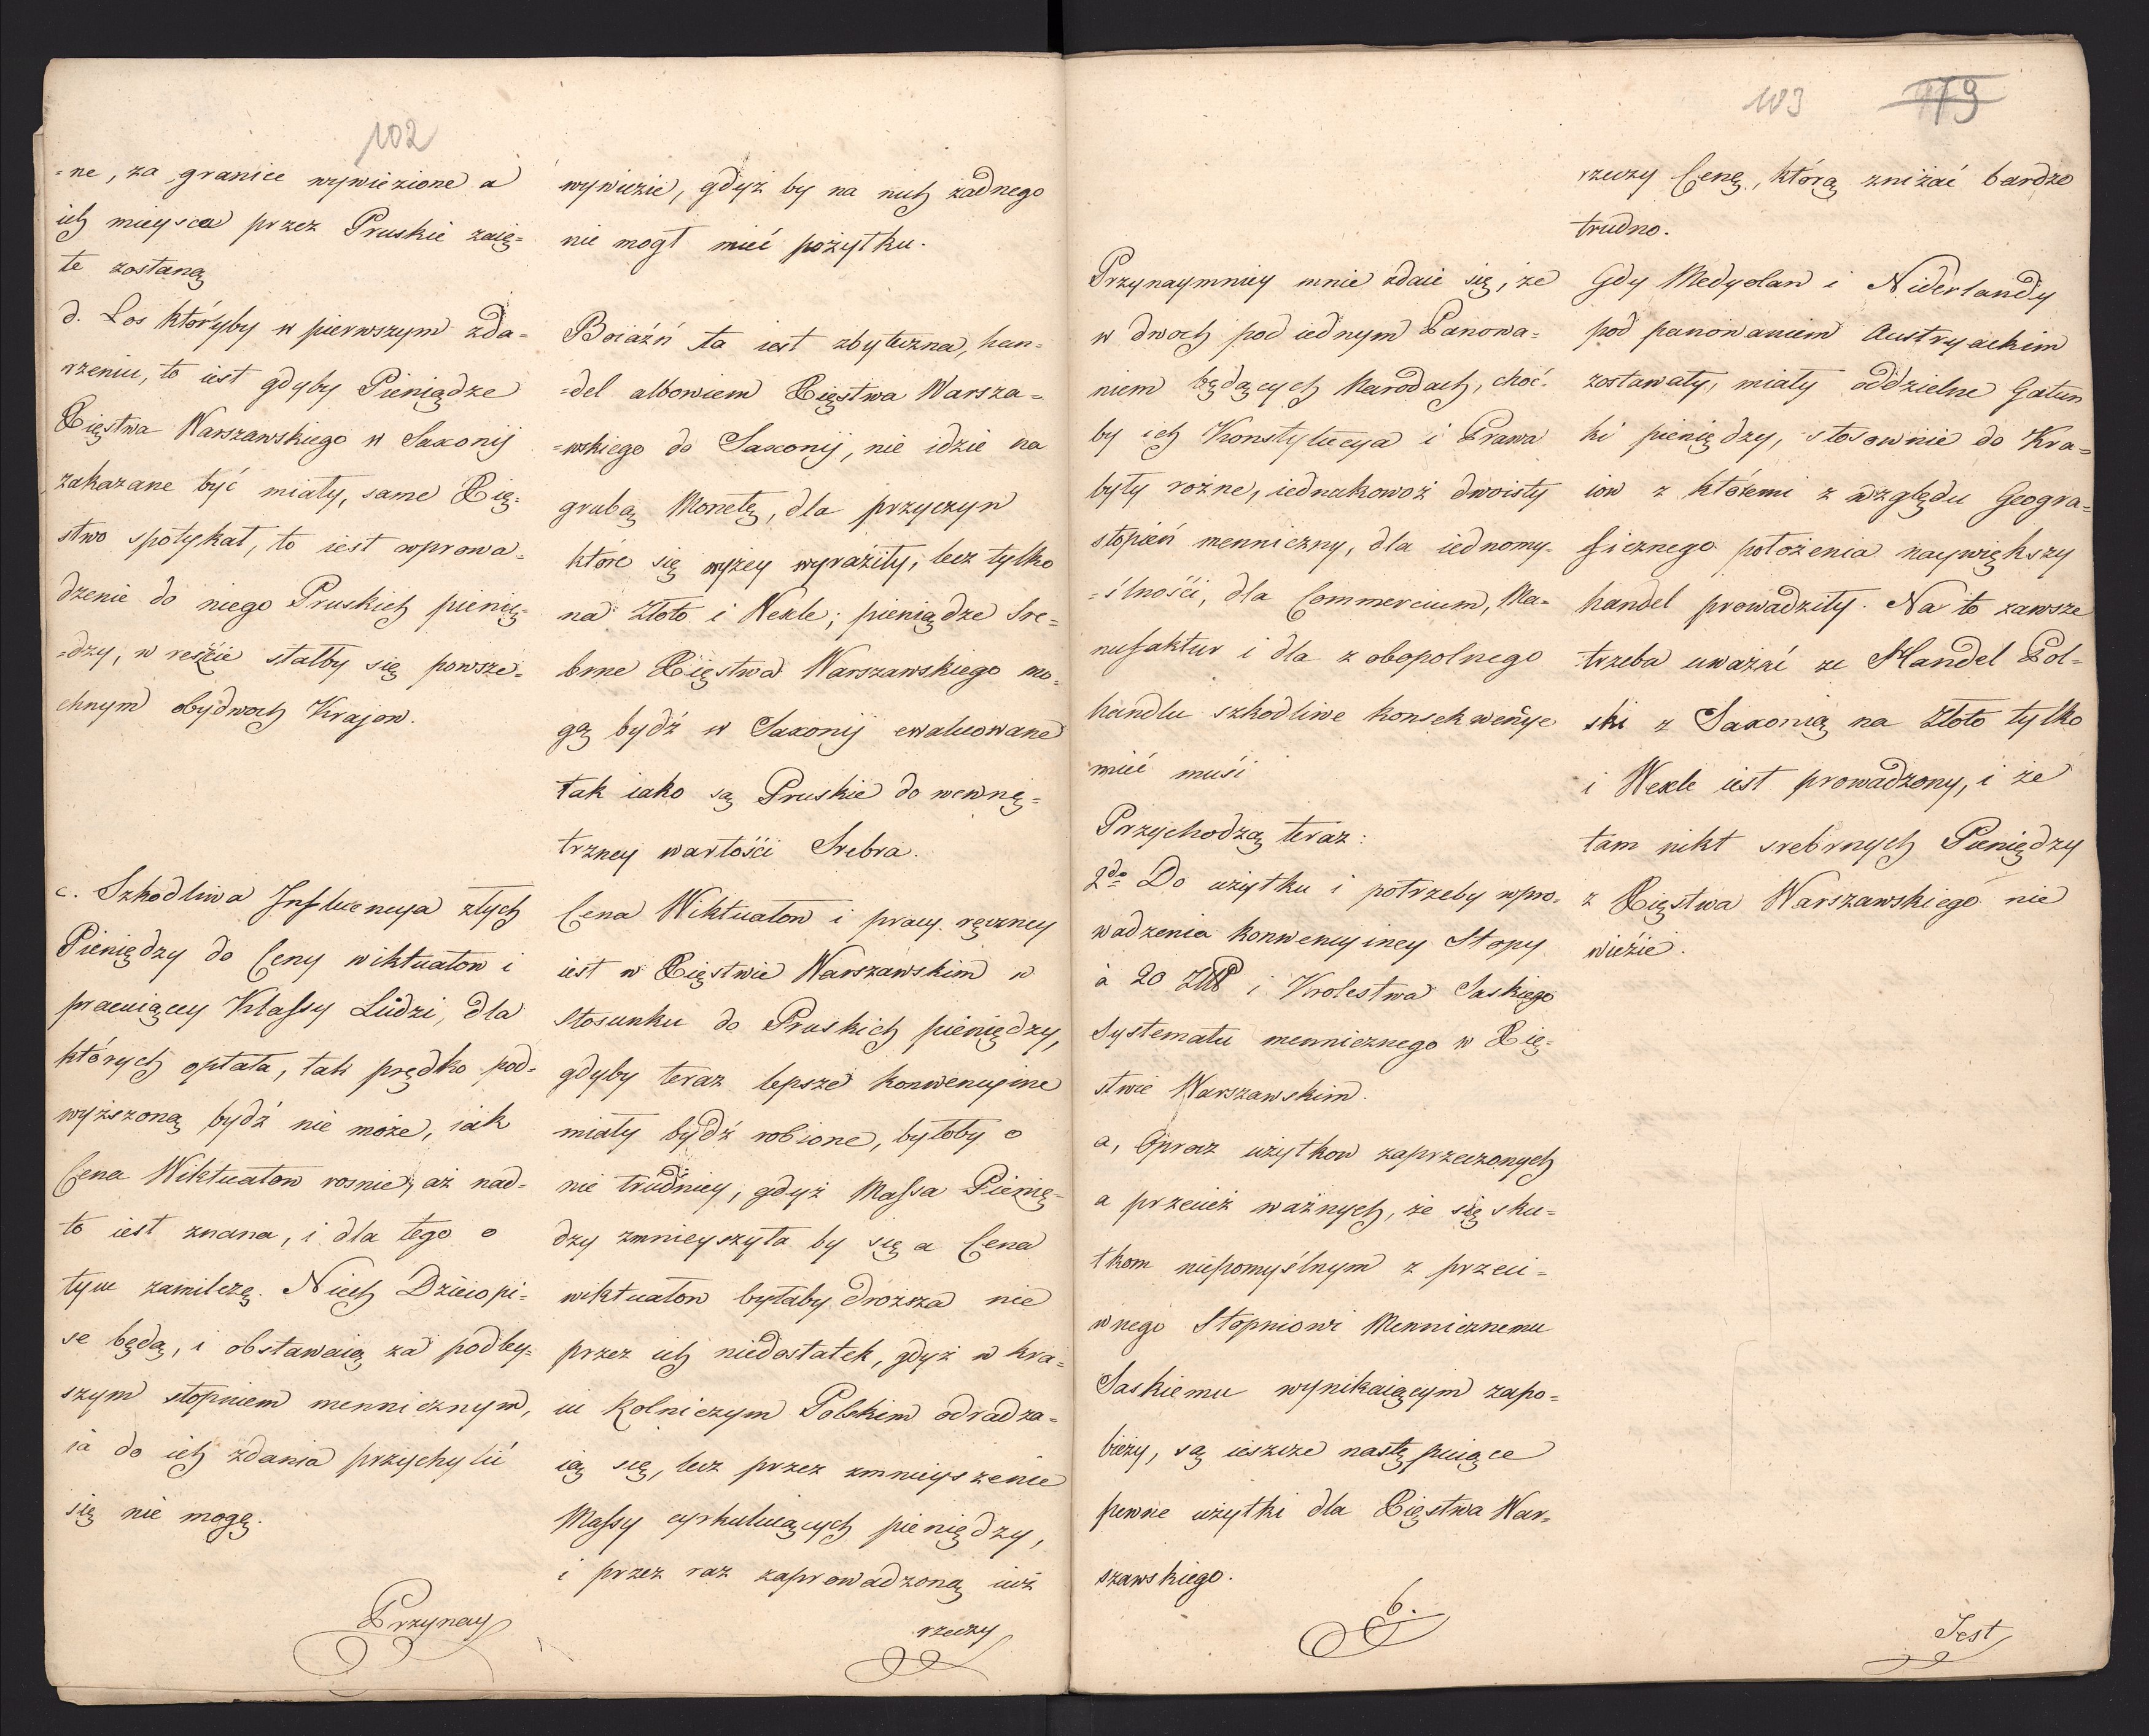 102
=ne, za granice wywiezione a
ich mieysca przez Pruskie zaię=
te zostaną
d. Los któryby w pierwszym zda=
rzeniu, to iest gdyby Pieniądze
Xięstwa Warszawskiego w Saxonij
zakazane być miały, same Xię=
stwo spotykał, to iest wprowa=
dzenie do niego Pruskich pienię=
=dzy, w reszcie stałby się powsze=
chnym obydwoch Krajow.
c. Szkodliwa Influencya złych
Pieniędzy do Ceny wiktuałow i
pracuiącey Klassy Ludzi, dla
których opłata, tak prędko pod=
wyższoną bydź nie może, iak
Cena Wiktuałow rosnie, aż nad=
to iest znana, i dla tego o
tym zamilczę. Niech Dzieiopi=
se będą, i obstawaią za podley=
szym stopniem mennicznym,
ia do ich zdania przychylić
się nie mogę.
Przynay
wywiezie, gdyż by na nich żadnego
nie mogł mieć pożytku.
Boiaźń ta iest zbyteczna, han=
=del albowiem Xięstwa Warsza=
=wskiego do Saxonij, nie idzie na
grubą Monetę, dla przyczyn
które się wyżey wyraźiły, lecz tylko
na Złoto i Wexle; pieniądze Sre=
brne Xięstwa Warszawskiego mo=
gą bydź w Saxonij ewaluowane
tak iako są Pruskie do wewnę=
trzney wartośći Srebra.
Cena Wiktuałow i pracy ręczney
iest w Xięstwie Warszawskim w
stosunku do Pruskich pieniędzy,
gdyby teraz lepsze konwencyine
miały bydź robione, byłoby o
nie trudniey, gdyż Massa Pienię=
dzy zmnieyszyła by się a Cena
wiktuałow byłaby droższa nie
przez ich niedostatek, gdyż w kra=
iu Rolniczym Polskim odradza=
ią się, lecz przez zmnieyszenie
Massy cyrkuluiących pieniędzy,
i przez raz zaprowadzoną iuż
rzeczy
103 179
Przynaymniey mnie zdaie się, że
w dwoch pod iednym Panowa=
niem będących Narodach, choć=
by ich Konstytucya i Prawa
były rożne, iednakowoż dwoisty
stopień menniczny, dla iednomy=
=ślnośći, dla Commercium, Ma=
nufaktur i dla z obopolnego
handlu szkodliwe konsekwencye
mieć muśi
Przychodzą teraz:
2do Do użytku i potrzeby wpro=
wadzenia konwencyiney Stopy
à 20 ZłR i Krolestwa Saskiego
Systematu mennicznego w Xię=
stwie Warszawskim.
a, Oprocz użytkow zaprzeczonych
a przecież ważnych, że się sku=
tkom niepomyślnym z przeci=
wnego Stopniowi Mennicznemu
Saskiemu wynikaiącym zapo=
bieży, są ieszcze następuiące
pewne użytki dla Xięstwa War=
szawskiego.
b.
rzeczy Cenę, którą zniżać bardzo
trudno.
Gdy Medyolan i Niderlandy
pod panowaniem Austryackim
zostawały, miały oddzielne Gatun
ki pieniędzy, stosownie do Kra=
iow z któremi z względu Geogra=
ficznego położenia naywiększy
handel prowadziły. Na to zawsze
trzeba uważać ze Handel Pol=
ski z Saxonią na Złoto tylko
i Wexle iest prowadzony, i że
tam nikt srebrnych Pieniędzy
z Xięstwa Warszawskiego nie
wieźie.
Jest